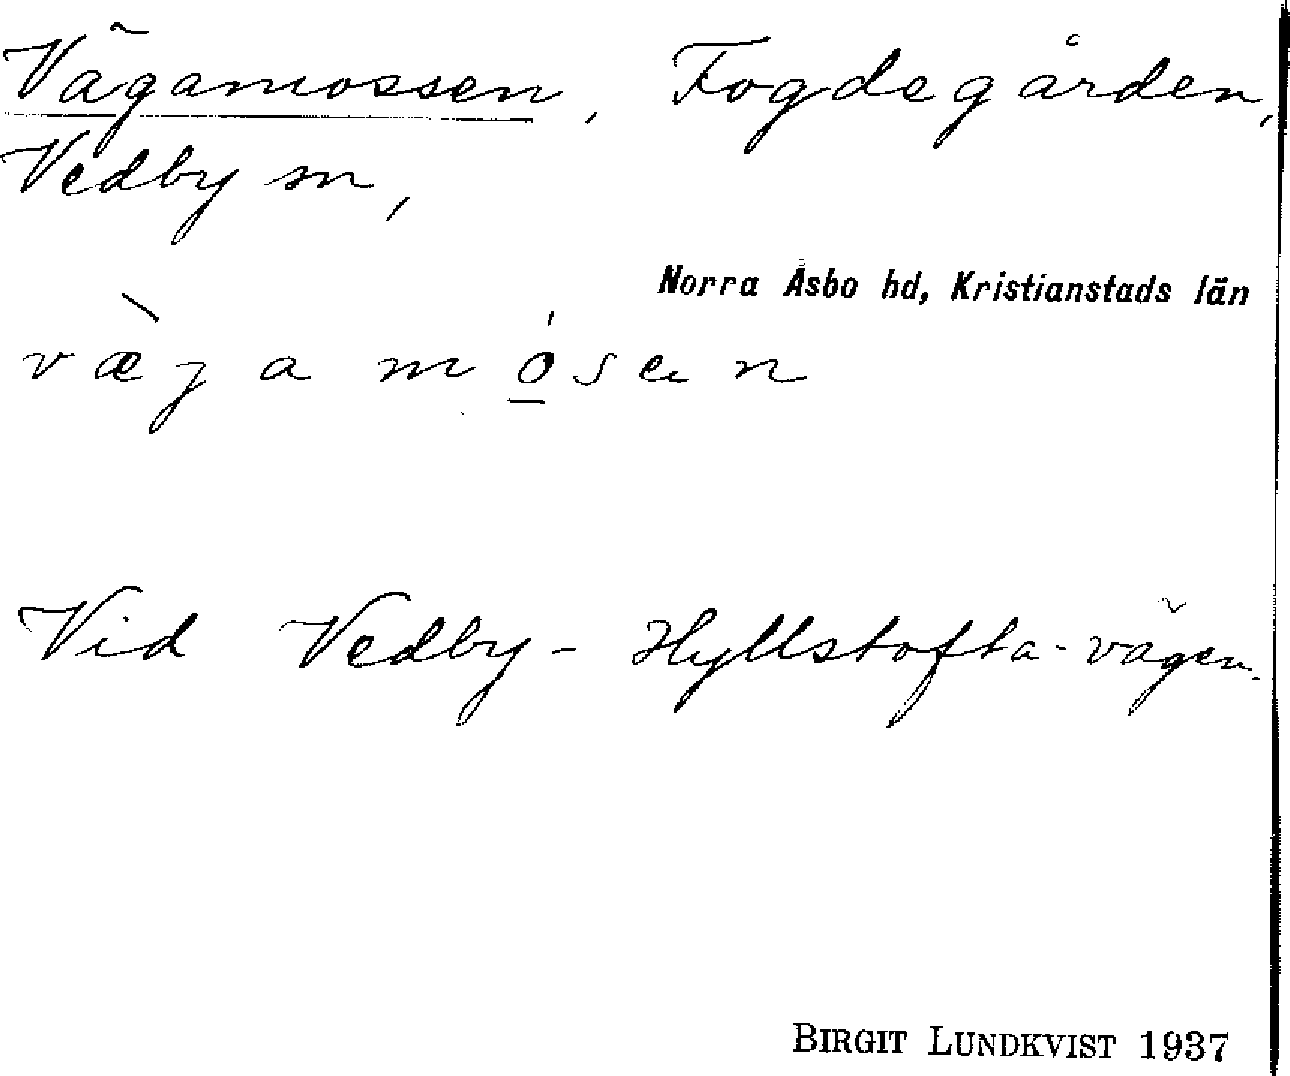 Vägamossen, Fogdegården,
Vedby sn,
Norra Åsbo hd, Kristianstads län
væ̀ga mó̱sen
Vid Vedby-Hyllstofta-vägen.
BIRGIT LUNDKVIST 1937